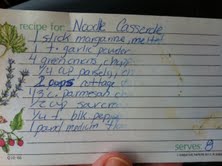 recipe for: Noodle Casserole
1 stick margarine, melted
1 t. garlic powder
4 green onions, chopped
1/4 cup parsley,
2 cups cottage
1/3 c. parmesan
1/2 cup sour cream
salt, blk pepper
1 pound medium
serves: 8